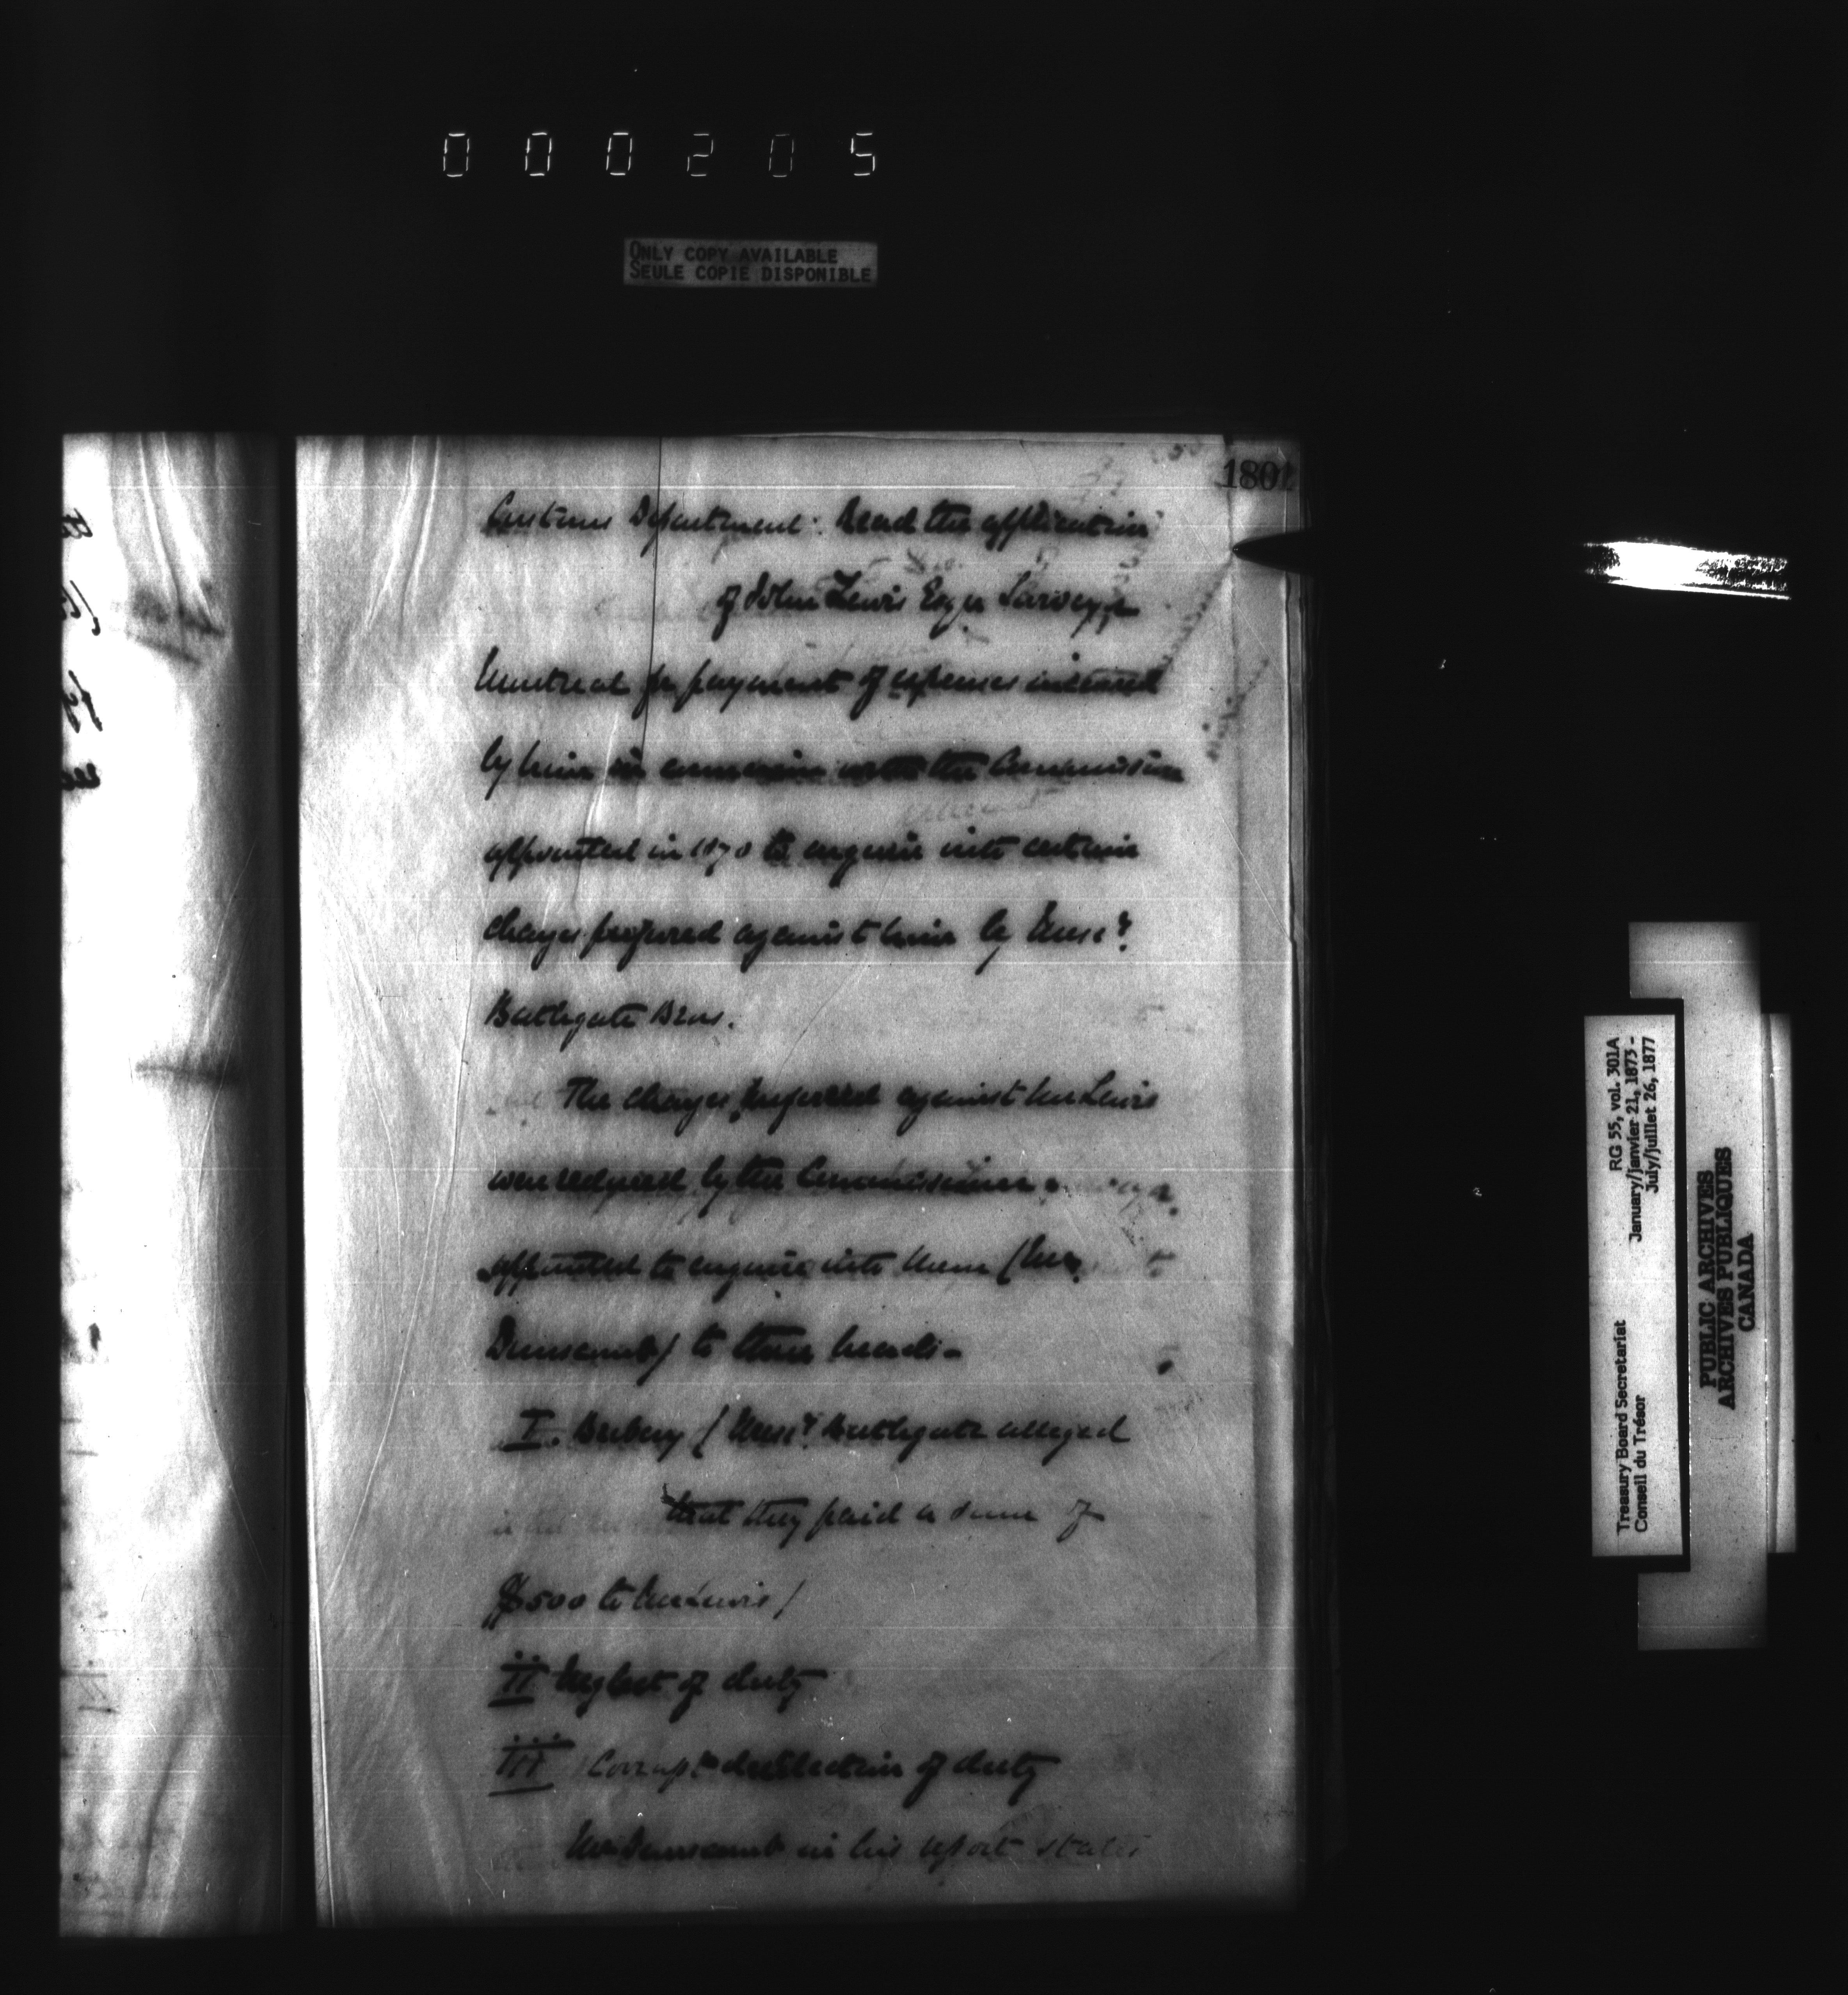 000205
ONLY COPY AVAILABLE
SEULE COPIE DISPONIBLE
180
Customs Department. Read the application
of John Lewis Esqr Surveyor
Montreal for payment of expenses incurred
by him in connexion with the Commission
appointed in 1870 to enquire into certain
charges preferred against him by Messrs
Bathgate Bros.
The charges preferred against Mr Lewis
were reduced by the Commissioner
appointed to enquire into them (Mr
Dunscomb) to three heads -
I. Bribery (Messrs Bathgate alleged
that they paid a sum of
$500 to Mr Lewis)
II Neglect of duty
III Corrupt dereliction of duty
Mr Dunscomb in his report states
RG 55, vol. 301A
January/janvier 21, 1873 -
July/juillet 26, 1877
Treasury Board Secretariat
Conseil du Trésor
PUBLIC ARCHIVES
ARCHIVES PUBLIQUES
CANADA